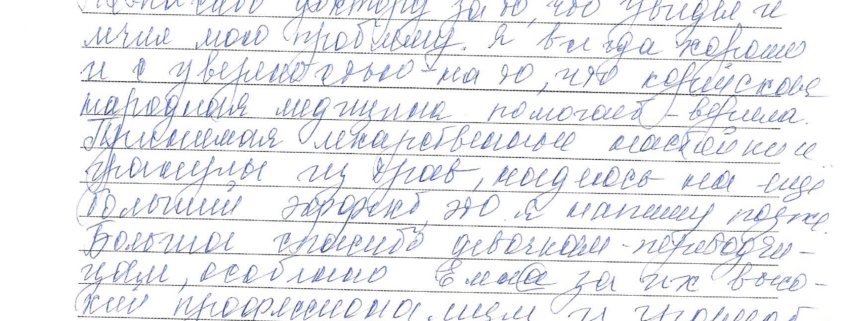 доктору за то, что увидел и
лечил мою проблему. Я всегда хорошо
и с уверенностью - на то, что корейская
народная медицина помогает - верила.
Принимая лекарственные настойки и
гранулы из трав, надеюсь на ещё
больший эффект, это я напишу позже.
Большое спасибо девочкам - переводчи-
цам, особенно за их высо-
кий профессионализм и